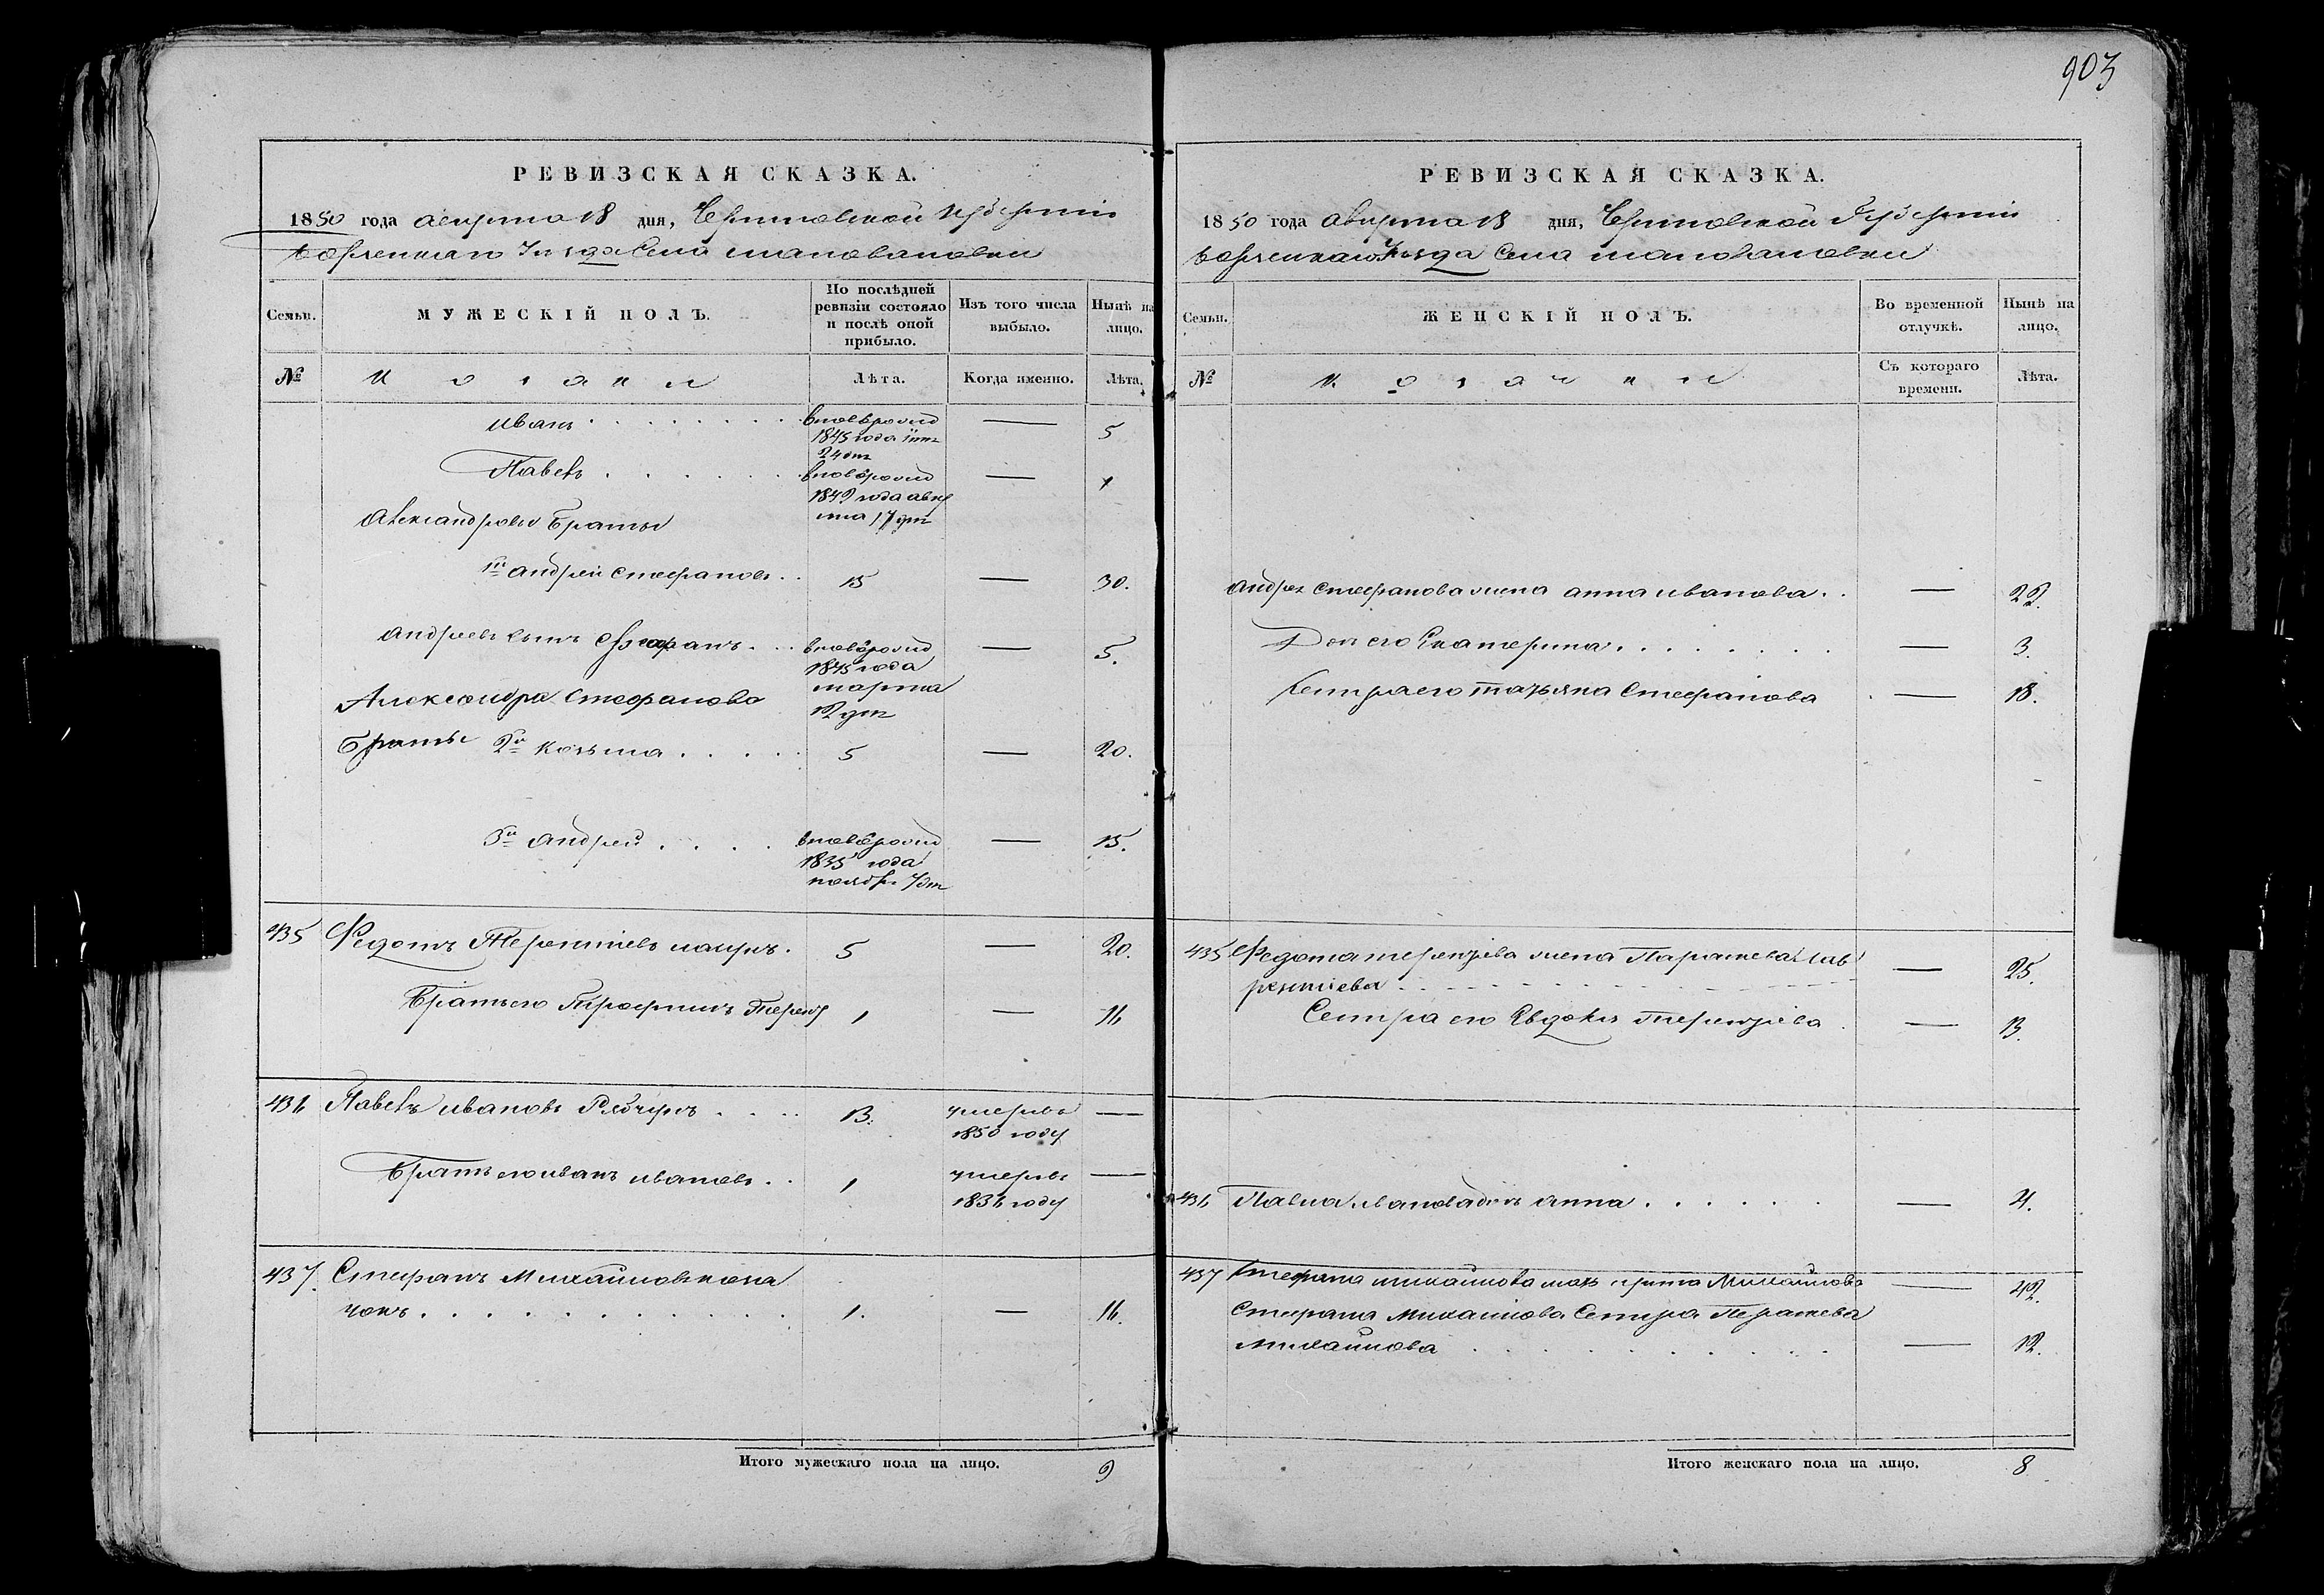 903
РЕВИЗСКАЯ СКАЗКА.
1850 года августа 18 дня, Черниговской Губернiи
Борзенскаго Уѣзда Села Шаповаловки
Семьи. МУЖЕСКIЙ ПОЛЪ. По послѣдней ревизiи состояло и послѣ оной прибыло. Изъ того числа выбыло. Нынѣ на лицо.
№ Козаки Лѣта. Когда именно. Лѣта.
Иванъ вновь рожд 5
1845 года
24 дня
Павелъ вновь рожд 1
1849 года авгу
ста 17 дня
Александровы братья
1й Андрей Стефановъ 15 — 30.
Андреевъ сынъ вновь рожд — 5.
1845 года
марта
12 дня
Александра Стефанова
братья 2й Козьма 5 — 20.
3й Андрей вновь рожд — 15.
1835 года
ноябр. 7 дня
435 Федотъ Терентiевъ 5 — 20.
Братъ его Трофимъ Терент 1 — 16
436 Павелъ Ивановъ 13. умеръ въ —
1850 году
Братъ его Иванъ Ивановъ 1 умеръ въ —
1836 году
437. Стефанъ Михайловъ
1. — 16.
Итого мужескаго пола на лицо. 9
РЕВИЗСКАЯ СКАЗКА.
1850 года августа 18 дня, Черниговской Губернiи
Борзенскаго Уѣзда Села Шаповаловки
Семьи. ЖЕНСКIЙ ПОЛЪ. Во временной отлучкѣ. Нынѣ на лицо.
№ Козачки Съ котораго времени. Лѣта.
Андрея Стефанова жена Анна Иванова — 22.
Доч его Екатерина — 3.
Сестра его Татьяна Стефанова — 18.
435 Федота Терентiева жена Параскева Лав
рентiева — 25.
Сестра его Евдокiя Терентiева — 13.
436 Павла Иванова дочь Анна — 4.
437 Стефана Михайлова мать Михайлова — 42.
Стефана Михайлова Сестра Параскева
Михайлова — 12.
Итого женскаго пола на лицо. 8